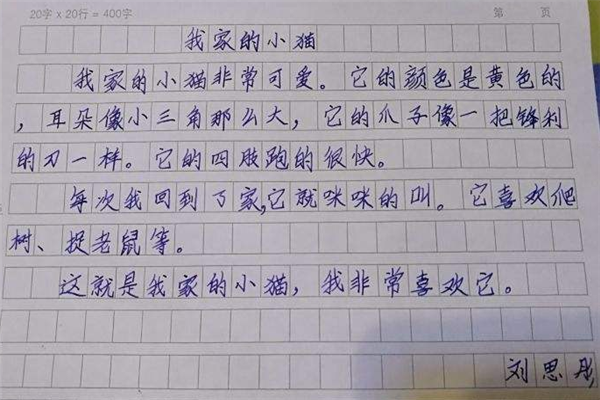 20字 x 20行 = 400字 第 页
我家的小猫
我家的小猫非常可爱。它的颜色是黄色的
，耳朵像小三角那么大，它的爪子像一把锋利
的刃一样。它的四肢跑的很快。
每次我回到了家,它就咪咪的叫。它喜欢爬
树、捉老鼠等。
这就是我家的小猫，我非常喜欢它。
刘思彤